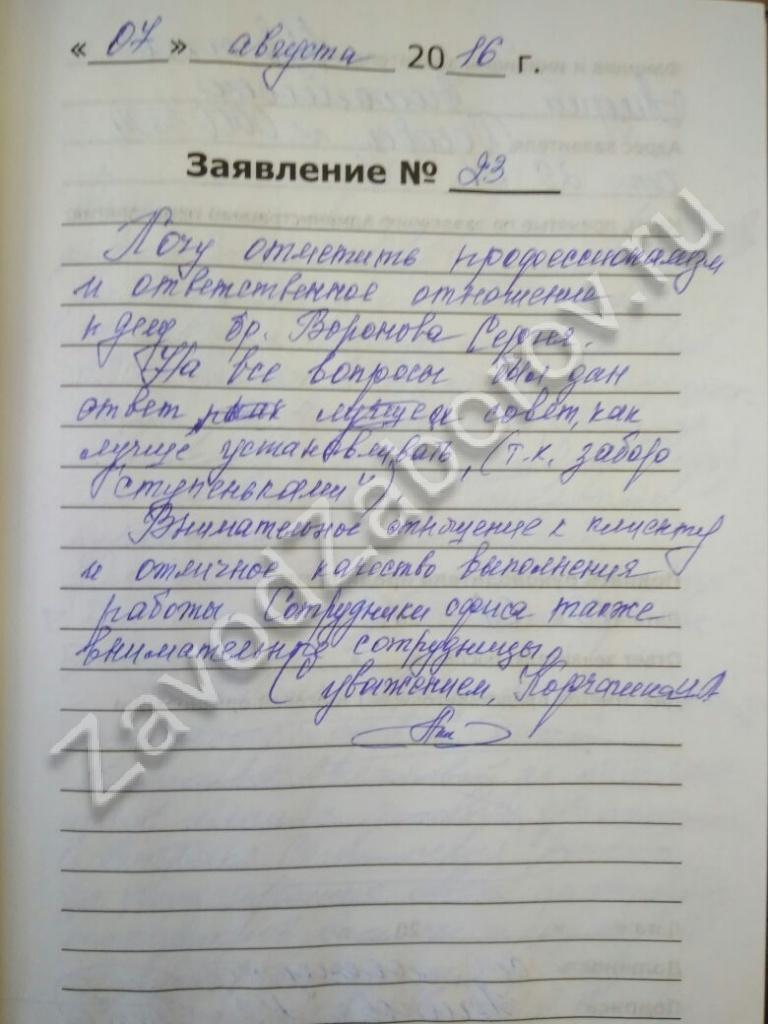 « 07 » августа 2016 г.
Заявление № 23
Хочу отметить профессионализм
и ответственное отношение
к делу бр. Воронова Сергея.
На все вопросы был дан
ответ, совет, как
лучше устанавливать, (т.к. забор
"ступеньками").
Внимательное отношение к клиенту
и отличное качество выполнения
работы. Сотрудники офиса также
внимательные сотрудницы.
С уважением,
ZavodZaborov.ru